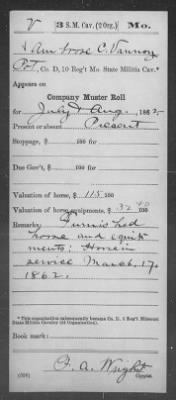 V 3 S. M. Cav. (2 Org.) Mo.
Ambrose C. Vannoy
Pvt, Co. D, 10 Reg't Mo. State Militia Cav.*
Appears on
Company Muster Roll
for July & Aug., 1862.
Present or absent Present
Stoppage, $ 100 for
Due Gov't, $ 100 for
Valuation of horse, $ 115/100
Valuation of horse equipments, $ 32 40/100
Remarks: Furnished
horse and equip
ments: Horse in
service March 17
1862.
*This organization subsequently became Co. D, 3 Reg't Missouri
State Militia Cavalry (2d Organization).
Book mark:
F. A. Wright
Copyist.